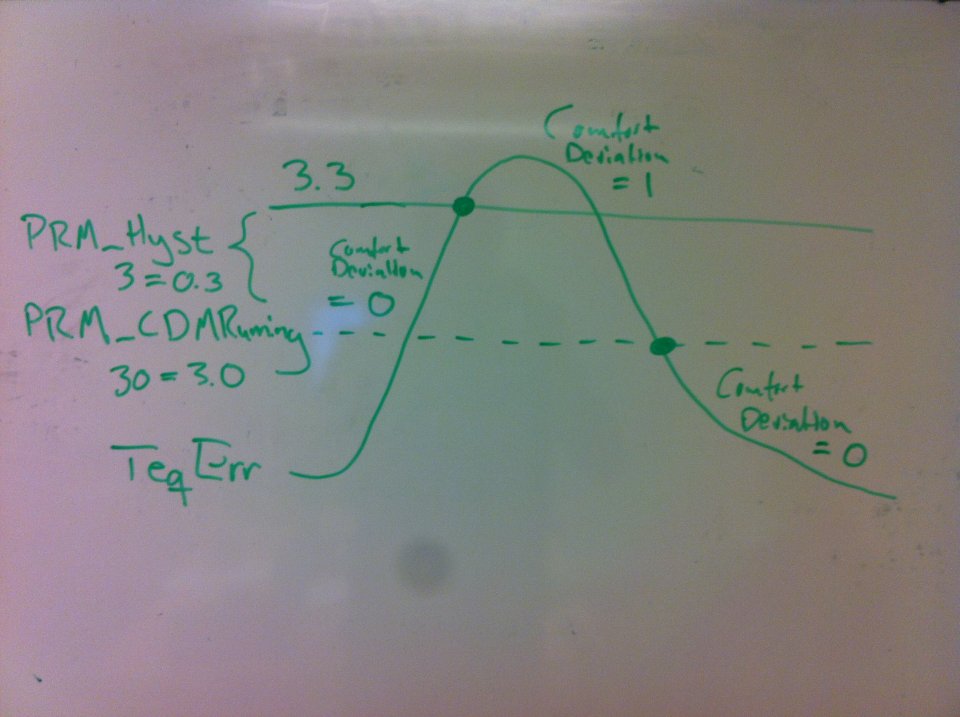 Comfort
Deviation
= 1
3.3
PRM_Hyst {
3 = 0.3
Comfort
Deviation
= 0
PRM_CDMRuning
30 = 3.0
Comfort
Deviation
= 0
TeqErr